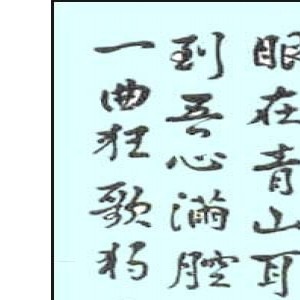 眼在青山耳
到吾心滿腔
一曲狂歌獨